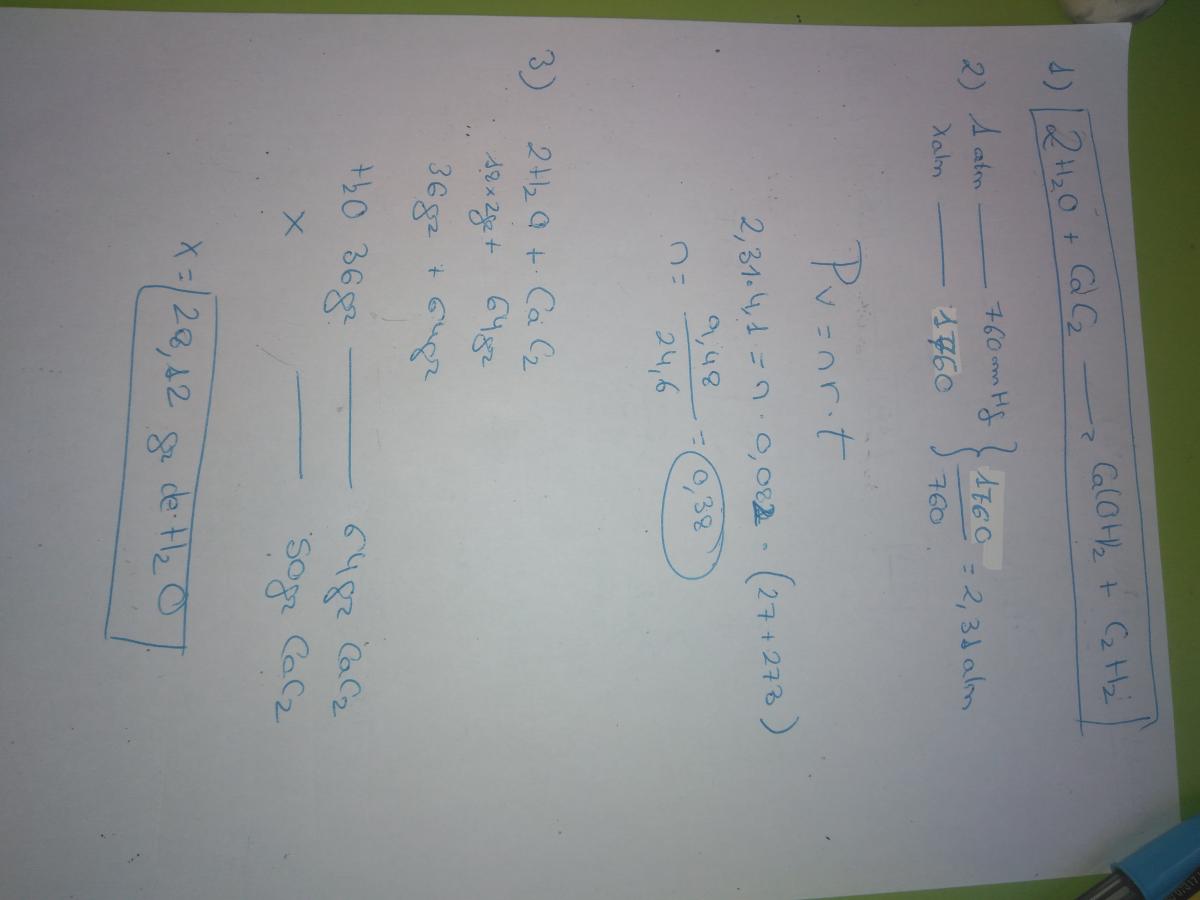 1) 2H2O + CaC2 → Ca(OH)2 + C2H2
2) 1 atm — 760 mmHg } 1760
x atm — 1760 } 760 = 2,31 atm
Pv = nr.t
2,31.4,1 = n.0,082.(27+273)
n = 9,48 = 0,38
24,6
3) 2H2O + CaC2
18x2gr + 64gr
36gr + 64gr
H2O 36gr — 64gr CaC2
x — 50gr CaC2
x = 28,12 gr de H2O